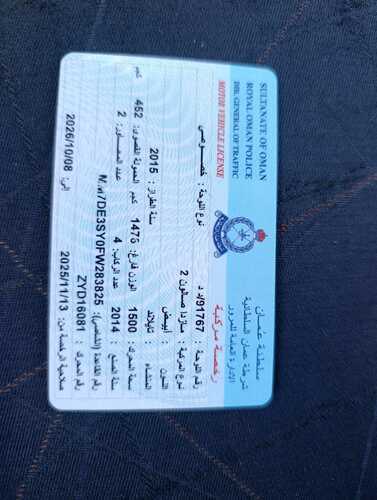 SULTANATE OF OMAN
ROYAL OMAN POLICE
DIR. GENERAL OF TRAFFIC
MOTOR VEHICLE LICENSE
سلطنة عمان
شرطة عمان السلطانية
الإدارة العامة للمرور
رخصة مركبة
رقم اللوحة : 91767/د د
نوع اللوحة : خصوصي
نوع المركبة : مازدا صالون 2
اللون : أبيض
المنشاء : تايلاند
سنة الطراز : 2015
سنة الصنع : 2014
سعة المحرك : 1500
عدد الركاب : 4
الوزن فارغ : 1475 كجم
الحمولة القصوى : 452 كجم
عدد المحاور : 2
رقم القاعدة (الشاصي):
رقم المحرك : ZYD16081
صلاحية الرخصة من: 2025/11/13
إلى: 2026/10/08